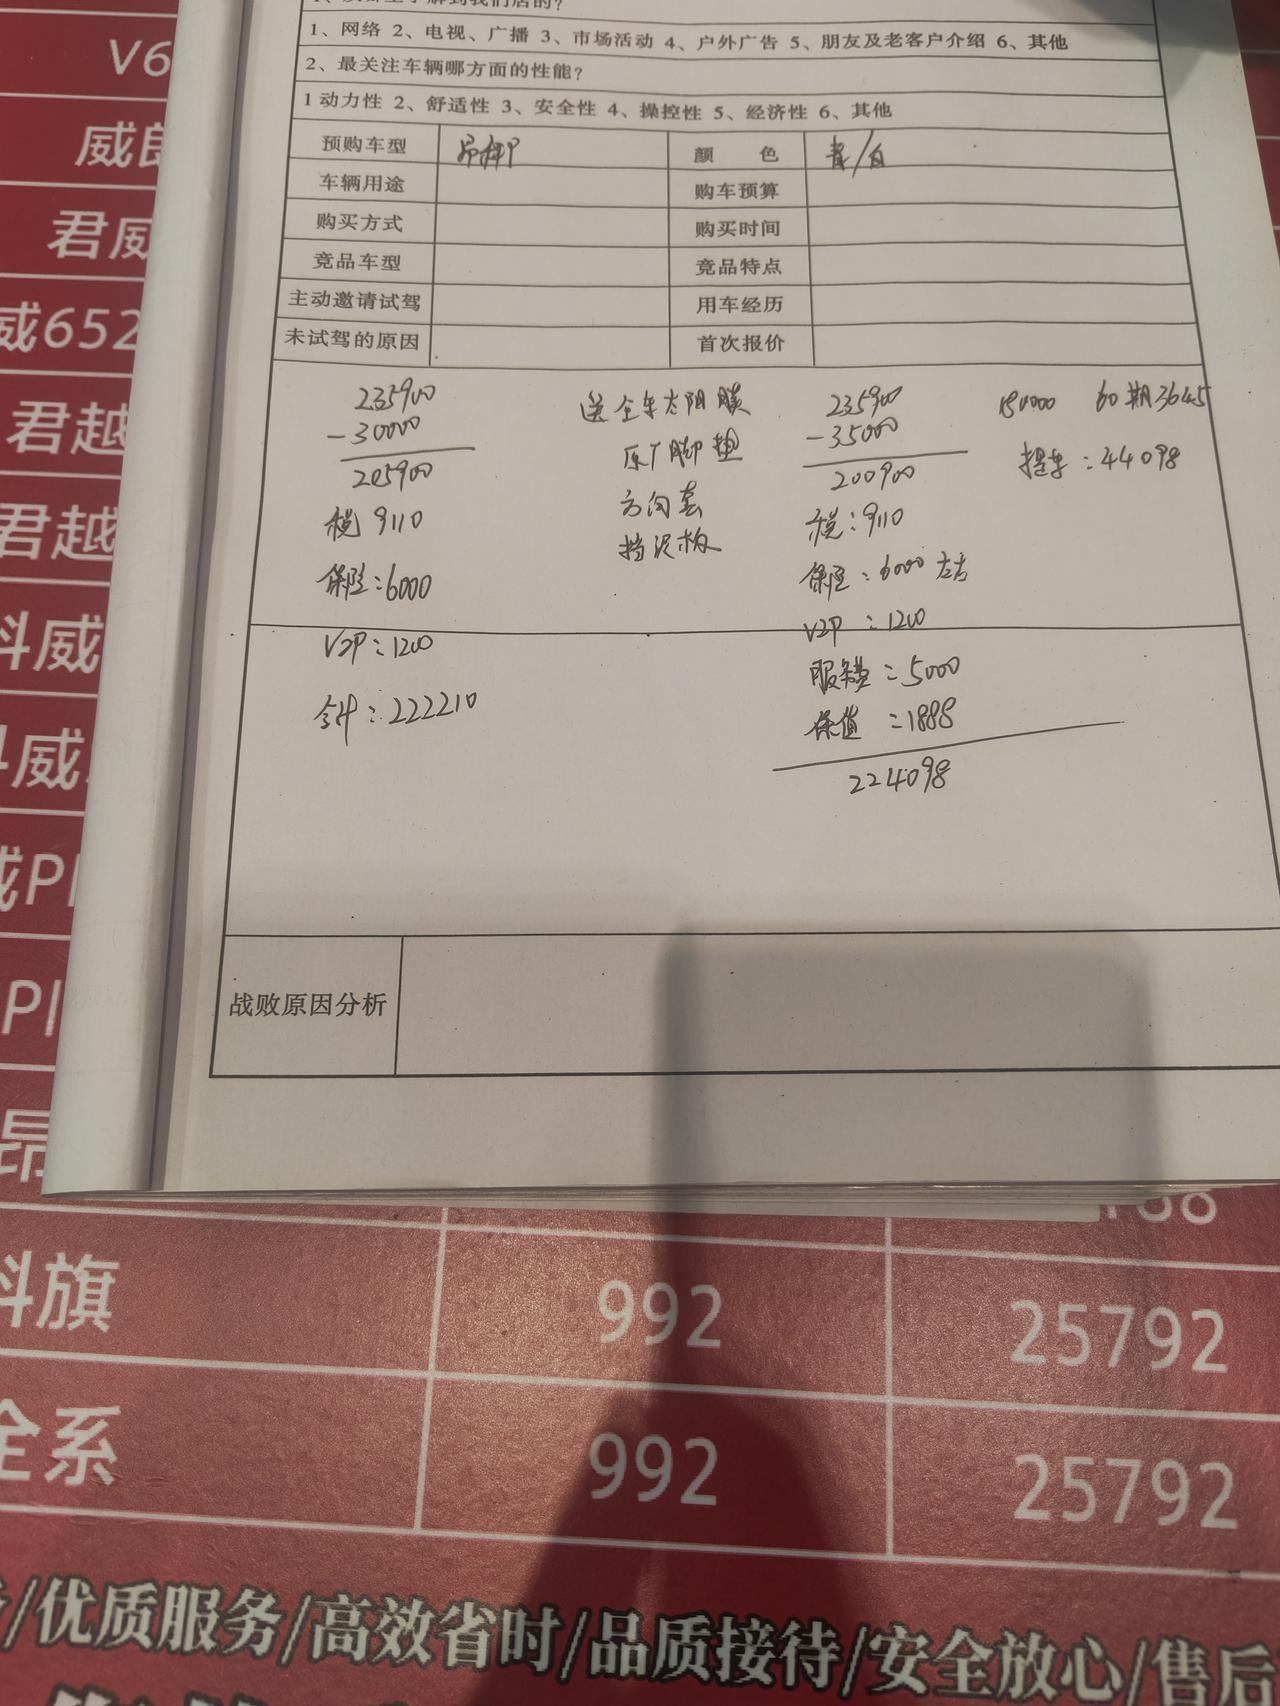 1、网络 2、电视、广播 3、市场活动 4、户外广告 5、朋友及老客户介绍 6、其他
2、最关注车辆哪方面的性能?
1动力性 2、舒适性 3、安全性 4、操控性 5、经济性 6、其他
预购车型 颜 色 青/白
车辆用途 购车预算
购买方式 购买时间
竞品车型 竞品特点
主动邀请试驾 用车经历
未试驾的原因 首次报价
235900
-30000
205900
税 9110
保险:6000
VIP:1200
合计:222210
送全车太阳膜
原厂脚垫
方向套
挡泥板
235900
-35000
200900
税:9110
保险:6000左右
VIP:1200
服务费:5000
保值:1888
224098
180000 60期3645
提车:44098
战败原因分析
V6
威
君威
威652
君越
君越
科威
威
威
昂
科旗 992 25792
全系 992 25792
/优质服务/高效省时/品质接待/安全放心/售后